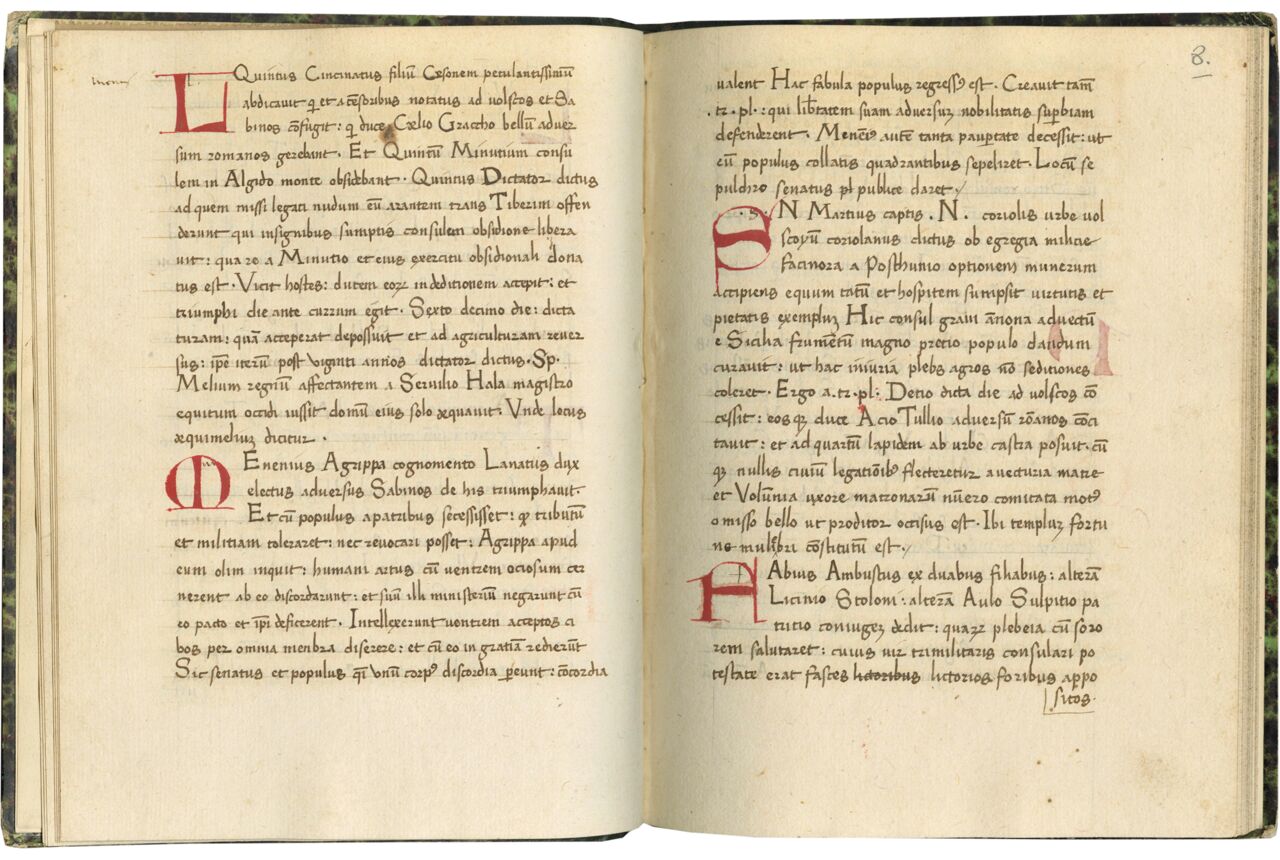 L Quintus Cincinatus filiū Cesonem petulantissimū
abdicauit qͥ et a cēsoribus notatus ad volscos et Sa
binos cōfugit: qͥ duce Cœlio Graccho bellū aduer
sum romanos gerebant. Et Quintū Minutium consu
lem in Algido monte obsidebant. Quintus Dictator dictus
ad quem missi legati nudum eū arantem trans Tiberim offen
derunt qui insignibus sumptis consulem obsidione libera
uit: quare a Minutio et eius exercitu obsidionali dona
tus est. Vicit hostes: ducem eoꝝ in deditionem accepit: et
triumphi die ante currum egit. Sexto decimo die: dicta
turam: quā acceperat depossuit et ad agriculturam reuer
sus: ip̄e iterū post viginti annos dictator dictus. Sp.
Melium regnū affectantem a Seruilio Hala magistro
equitum occidi iussit domū eius solo æquauit. Vnde locus
æquimeliuȝ dicitur.
MEnenius Agrippa cognomento Lanatus dux
electus aduersus Sabinos de his triumphauit.
Et cū populus a patribus secessisset: qꝫ tributū
et militiam toleraret: nec reuocari posset: Agrippa apud
eum olim inquit: humani artus cū ventrem ociosum cer
nerent ab eo discordarunt: et suū illi ministeriū negarunt cū
eo pacto et ip̄i deficerent. Intellexerunt ventrem acceptos ci
bos per omnia menbra diserere: et cū eo in gratiā redierūt
Sic senatus et populus qͣi vnū corpꝰ discordia ꝑeunt: cōcordia
8.
valent Hac fabula populus regressꝰ est. Creauit tam̄
.tr. pl.: qui lib̄tatem suam aduersuȝ nobilitatis suꝑbiam
defenderent. Meneiꝰ aut̄e tanta pauꝑtate decessit: ut
eū populus collatis quadrantibus sepeliret. Locū se
pulchro senatus pl publice daret
S. N Martius captis .N. coriolis vrbe vol
scoꝝū coriolanus dictus ob egregia milicie
facinora a Posthunio optionem munerum
accipiens equum tātū et hospitem sumpsit virtutis et
pietatis exempluȝ Hic consul graui ānona aduectū
e Sicilia frumētū magno precio populo dandum
curauit: ut hac iniuria plebs agros nō seditiones
coleret. Ergo a .tr. pl: Detio dicta die ad volscos cō
cessit: eosqꝫ duce Acio Tullio aduersū rōanos cōci
tauit: et ad quartū lapidem ab vrbe castra posuit. cū
qꝫ nullis ciuiū legationibꝰ flecteretur a vecturia matre
et Volūnia vxore matronarū nūero comitata motꝰ
omisso bello ut proditor occisus est. Ibi templuȝ fortu
ne mulibri cōstitutū est.
FAbius Ambustus ex duabus filiabus: alterā
Licinio Stoloni: alterā Aulo Sulpitio pa
tritio coniugeȝ dedit: quaꝝ plebeia cū soro
rem salutaret: cuius vir tri militaris consulari po
testate erat fasces lictoribus lictorios foribus appo
sitos.